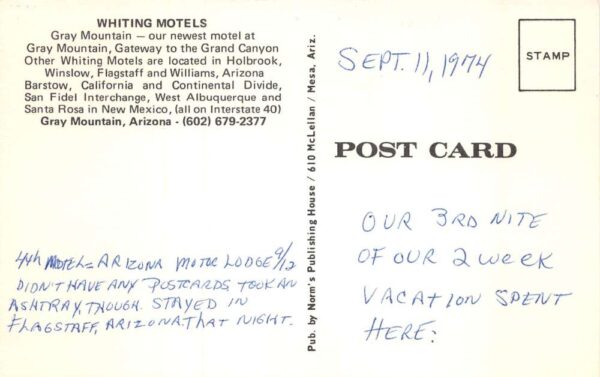 WHITING MOTELS
Gray Mountain — our newest motel at
Gray Mountain, Gateway to the Grand Canyon
Other Whiting Motels are located in Holbrook,
Winslow, Flagstaff and Williams, Arizona
Barstow, California and Continental Divide,
San Fidel Interchange, West Albuquerque and
Santa Rosa in New Mexico, (all on Interstate 40)
Gray Mountain, Arizona - (602) 679-2377
4th MOTEL = ARIZONA MOTOR LODGE 9/12
DIDN'T HAVE ANY POSTCARDS TOOK AN
ASHTRAY, THOUGH. STAYED IN
FLAGSTAFF, ARIZONA THAT NIGHT.
Pub. by Norm's Publishing House / 610 McLellan / Mesa, Ariz.
SEPT. 11, 1974
STAMP
POST CARD
OUR 3RD NITE
OF OUR 2 WEEK
VACATION SPENT
HERE: